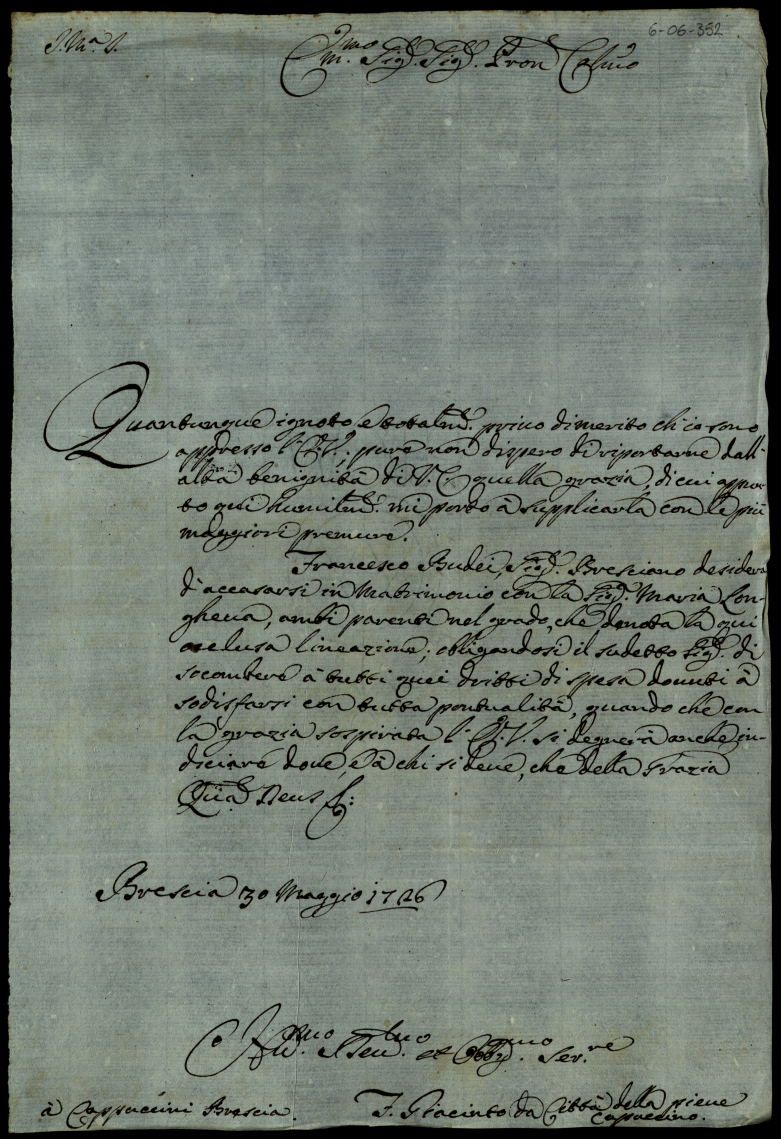 6-06-352
J. M.ª J.
Ill.mo Sig.r Sig.r Pron Col.mo
Quantunque ignoto, e totalm.te privo di merito ch'io sono
appresso l'E.V., pure non dispero di riportarne dall'
alta benignità di V.E. quella grazia, di cui appun
to qui humilm.te mi porto à supplicarla con le più
maggiori premure.
Francesco Budei, Sig.r Bresciano desidera
d'accasarsi in Matrimonio con la Sig.ra Maria Lon-
ghena, ambi parenti nel grado, che denota la qui
acclusa lineazione; obligandosi il sudetto Sig.r di
socombere à tutti quei dritti di spesa dovuti à
sodisfarsi con tutta pontualità, quando che con
la grazia sospirata l'E.V. si degnerà anche in-
diciare dove, e à chi si deve, che della Grazia
Deus
Brescia 30 Maggio 1726
Hu.mo Deu.mo et Obbg.mo Ser.re
à Cappuccini Brescia.
F. Giacinto da Città della pieve
Capuccino.